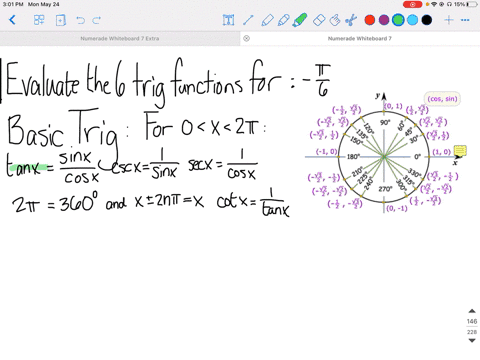 3:01 PM Mon May 24
15%
Numerade Whiteboard 7 Extra
Numerade Whiteboard 7
Evaluate the 6 trig functions for : -π/6
Basic Trig : For 0 < x < 2π :
tanx = sinx/cosx cscx = 1/sinx secx = 1/cosx
2π = 360° and x ± 2nπ = x cotx = 1/tanx
(cos, sin)
y
(0, 1)
90°
120°
60°
135°
45°
150°
30°
(-1, 0)
180°
0°
(1, 0)
x
210°
330°
225°
315°
240°
300°
270°
(0, -1)
146
228